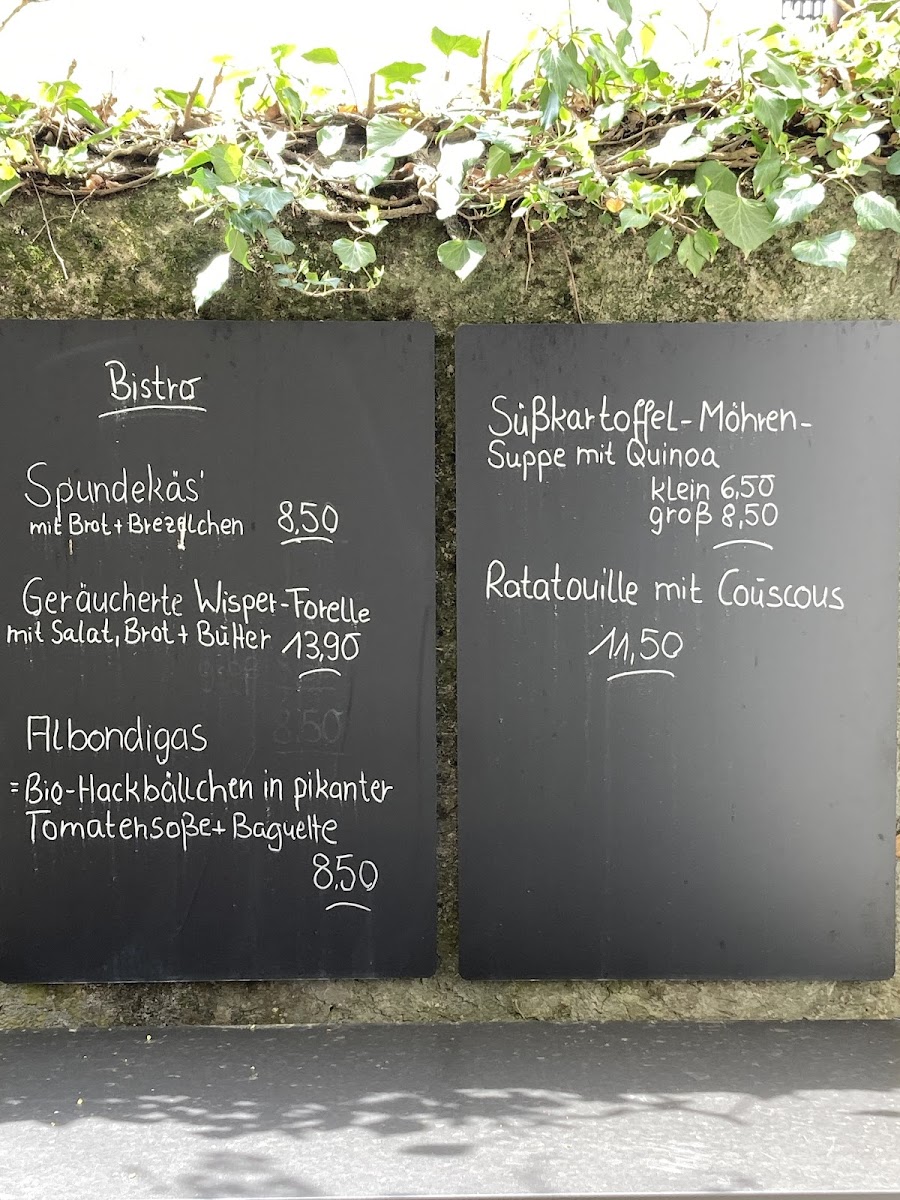 Bistro
Spundekäs'
mit Brot + Brezelchen 8,50
Geräucherte Wisper-Forelle
mit Salat, Brot + Butter 13,90
Albondigas
= Bio-Hackbällchen in pikanter
Tomatensoße + Baguette
8,50
Süßkartoffel-Möhren-
Suppe mit Quinoa
klein 6,50
groß 8,50
Ratatouille mit Couscous
11,50